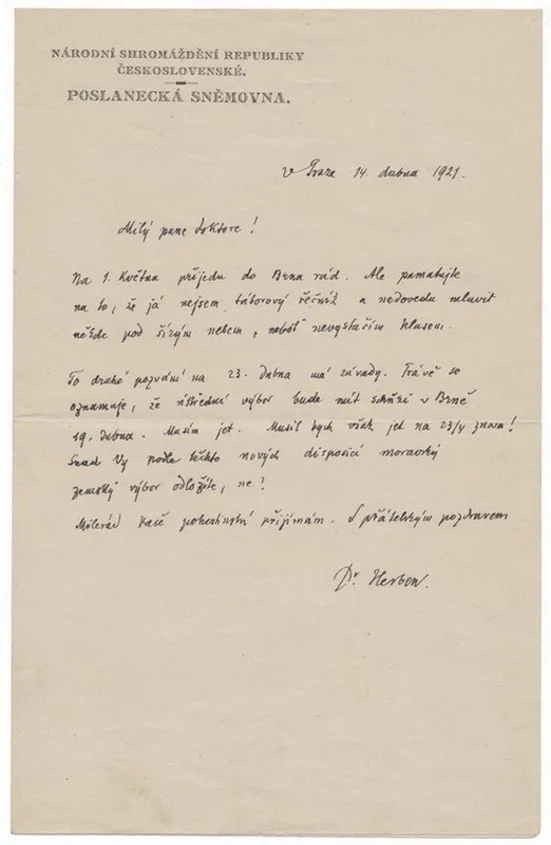 NÁRODNÍ SHROMÁŽDĚNÍ REPUBLIKY
ČESKOSLOVENSKÉ.
POSLANECKÁ SNĚMOVNA.
V Praze 14. dubna 1921.
Milý pane doktore!
Na 1. května přijedu do Brna rád. Ale pamatujte
na to, že já nejsem táborový řečník a nedovedu mluvit
někde pod širým nebem, neboť nevystačím hlasem.
To druhé pozvání na 23. dubna má závady. Právě se
oznamuje, že ústřední výbor bude mít schůzi v Brně
19. dubna. Musím jet. Musil bych však jet na 23/4 znova!
Snad Vy podle těchto nových disposicí moravský
zemský výbor odložíte, ne?
Milerád Vaše pohostinství přijímám. S přátelským pozdravem
Dr. Herben.